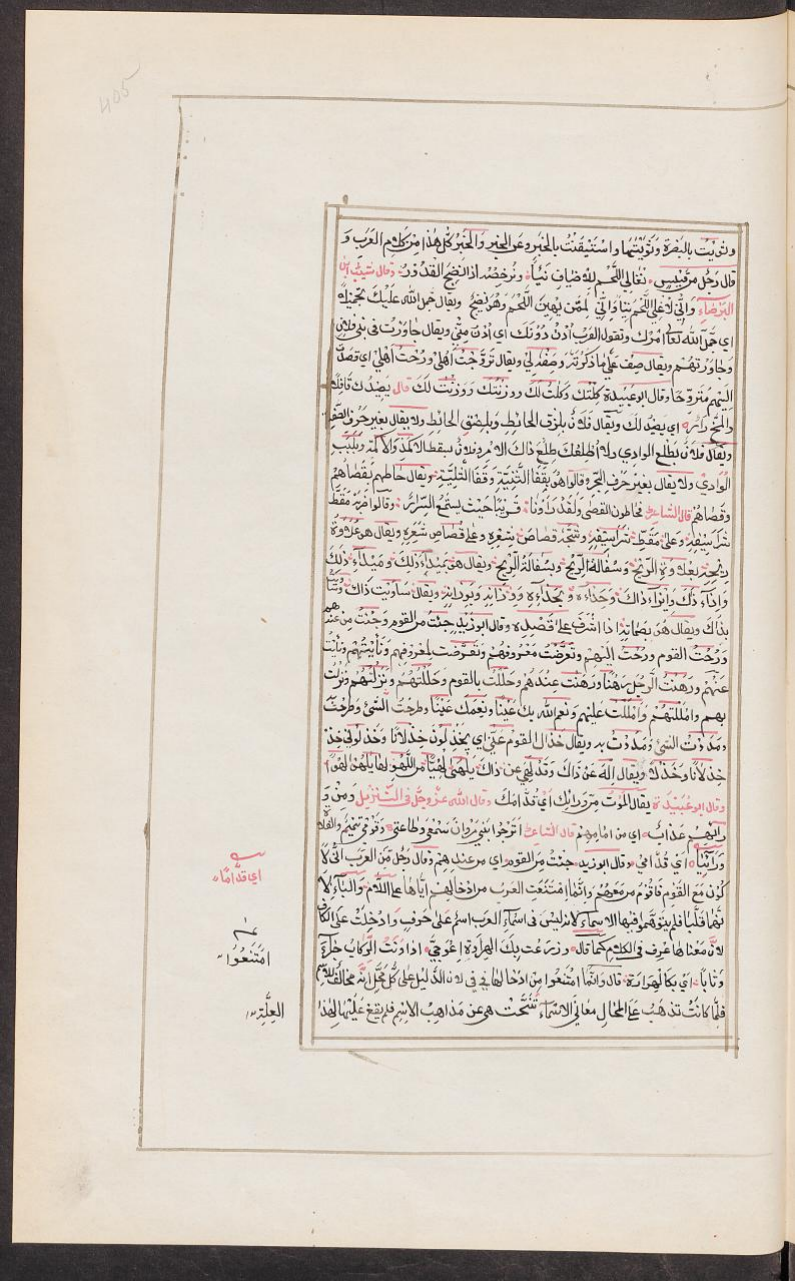 405
بالبصرة وثويتها واستيقنت بالخبر وعن الخبر والخبر كل هذا من كلام العرب و
قال رجل من قيس نغالي اللحم للاضياف نيا ونرخصه اذا نضج القدور وقال شبيب ابن
البرصاء واني لاغلي اللحم نيا وانني لممن يهين اللحم وهو نضيج ويقال جمل الله عليك تجميلا
اي جمل الله امرك وتقول العرب اذن دونك اي اذن مني ويقال جاورت في بني فلان
وجاورتهم ويقال صف علي ما ذكرته وصفه لي ويقال تروحت اهلي ورحت اهلي اي قصدت
اليهم متروحا وقال ابو عبيدة كلتك وكلت لك ووزنتك ووزنت لك قال يصيدك قافلا
والمخ رار اي يصيد لك ويقال فلان بلزق الحائط وبلصق الحائط ولا يقال بغير حرف الصفة
ويقال فلان بطلع الوادي ولا اطلعك طلع ذاك الامر وفلان سقط الاكمة وبلبب
الوادي ولا يقال بغير حرف الجر قالوا هو بقفا الثنية وقفا الثنية ويقال حاطهم بقصاهم
وقصاهم قال الشاعر فحاطونا القصى ولقد راونا قريبا حيث يستمع السرار وقالوا ضربه مقط
شراسيفه وعلى مقط شراسيفه وشجه قصاص شعره وعلى قصاص شعره ويقال هو علاوة
الريح بعلاوة الريح وسفالة الريح وبسفالة الريح ويقال هو بميداء ذلك وميداء ذلك
وازاء ذلك وبازاء ذاك وحذاءه وبحذاءه ووزانه وبوزانه ويقال ساويت ذاك
بذاك ويقال هو اذا اشرف على قصده وقال ابو زيد جئت من القوم وجئت من عندهم
ورحت القوم ورحت اليهم وتعرضت معروفهم وتعرضت لمعروفهم ونأيتهم ونأيت
عنهم ورهنت الرجل رهنا ورهنت عنده وحللت بالقوم وحللتهم ونزلتهم ونزلت
بهم واملتهم واملت عليهم ونعم الله بك عينا ونعمك عينا وطرحت الشئ وطرحت به
ومددت الشئ ومددت به ويقال خذل القوم عني اي يخذلون خذلانا وخذلوني
خذلانا وخذلا ويقال اله عن ذاك وقد لهي عن ذاك يلهى لهيا من اللهو لها يلهو لهوا
وقال ابو عبيدة يقال الموت من ورائك اي قدامك وقال الله عز وجل في التنزيل ومن و
رائهم عذاب اي من امامهم قال الشاعر اترجو بني مروان سمعي وطاعتي وقومي تميم والفلاة
ورائيا اي قدامي وقال ابو زيد جئت من القوم اي من عندهم وقال رجل من العرب اني لا
كون مع القوم فاقوم من معهم وانما امتنعت العرب من ادخالهم اياها على اللام والباء لا
نهما قلتا فلم يتوهموا فيها الاسماء لانه ليس في اسماء العرب اسم على حرف وادخلت على الكاف
لان معناها عرف في الكلام كما قال وزعت بكالهراوة اعوجي اذا ونت الركاب جرى
وثابا اي بكالهراوة قال وانما امتنعوا من ادخالها في في لان الدليل على كل محل انه مخالف للاسم
فلما كانت تذهب على المحال معاني الاسماء تنحت هي عن مذاهب الاسم فلم يقع عليها لهذا
اي قداما
امتنعوا
العلة